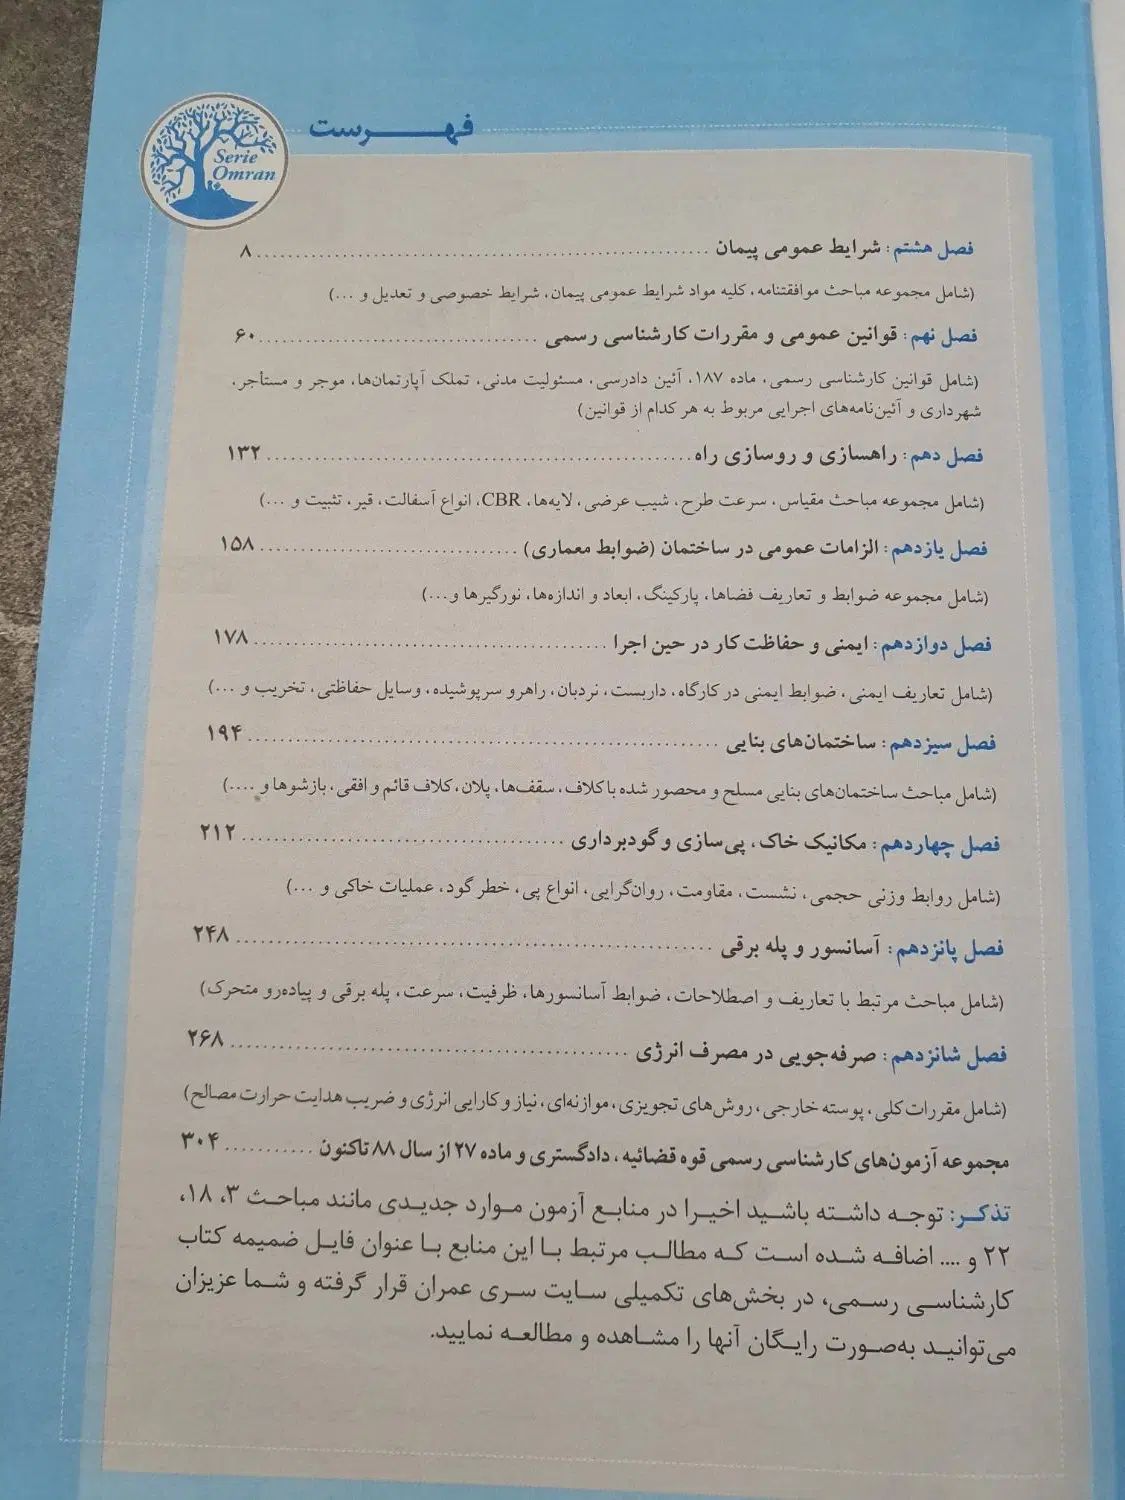 فهرست
Serie
Omran
فصل هشتم: شرایط عمومی پیمان ........ ۸
(شامل مجموعه مباحث موافقتنامه، کلیه مواد شرایط عمومی پیمان، شرایط خصوصی و تعدیل و ...)
فصل نهم: قوانین عمومی و مقررات کارشناسی رسمی ........ ۶۰
(شامل قوانین کارشناسی رسمی، ماده ۱۸۷، آئین دادرسی، مسئولیت مدنی، تملک آپارتمان‌ها، موجر و مستأجر،
شهرداری و آئین‌نامه‌های اجرایی مربوط به هر کدام از قوانین)
فصل دهم: راهسازی و روسازی راه ........ ۱۳۲
(شامل مجموعه مباحث مقیاس، سرعت طرح، شیب عرضی، لایه‌ها، CBR، انواع آسفالت، قیر، تثبیت و ...)
فصل یازدهم: الزامات عمومی در ساختمان (ضوابط معماری) ........ ۱۵۸
(شامل مجموعه ضوابط و تعاریف فضاها، پارکینگ، ابعاد و اندازه‌ها، نورگیرها و...)
فصل دوازدهم: ایمنی و حفاظت کار در حین اجرا ........ ۱۷۸
(شامل تعاریف ایمنی، ضوابط ایمنی در کارگاه، داربست، نردبان، راهرو سرپوشیده، وسایل حفاظتی، تخریب و ...)
فصل سیزدهم: ساختمان‌های بنایی ........ ۱۹۴
(شامل مباحث ساختمان‌های بنایی مسلح و محصور شده با کلاف، سقف‌ها، پلان، کلاف قائم و افقی، بازشوها و ....)
فصل چهاردهم: مکانیک خاک، پی‌سازی و گودبرداری ........ ۲۱۲
(شامل روابط وزنی حجمی، نشست، مقاومت، روان‌گرایی، انواع پی، خطر گود، عملیات خاکی و ...)
فصل پانزدهم: آسانسور و پله برقی ........ ۲۴۸
(شامل مباحث مرتبط با تعاریف و اصطلاحات، ضوابط آسانسورها، ظرفیت، سرعت، پله برقی و پیاده‌رو متحرک)
فصل شانزدهم: صرفه‌جویی در مصرف انرژی ........ ۲۶۸
(شامل مقررات کلی، پوسته خارجی، روش‌های تجویزی، موازنه‌ای، نیاز و کارایی انرژی و ضریب هدایت حرارت مصالح)
مجموعه آزمون‌های کارشناسی رسمی قوه قضائیه، دادگستری و ماده ۲۷ از سال ۸۸ تاکنون ........ ۳۰۴
تذکر: توجه داشته باشید اخیرا در منابع آزمون موارد جدیدی مانند مباحث ۳، ۱۸،
۲۲ و .... اضافه شده است که مطالب مرتبط با این منابع با عنوان فایل ضمیمه کتاب
کارشناسی رسمی، در بخش‌های تکمیلی سایت سری عمران قرار گرفته و شما عزیزان
می‌توانید به‌صورت رایگان آنها را مشاهده و مطالعه نمایید.